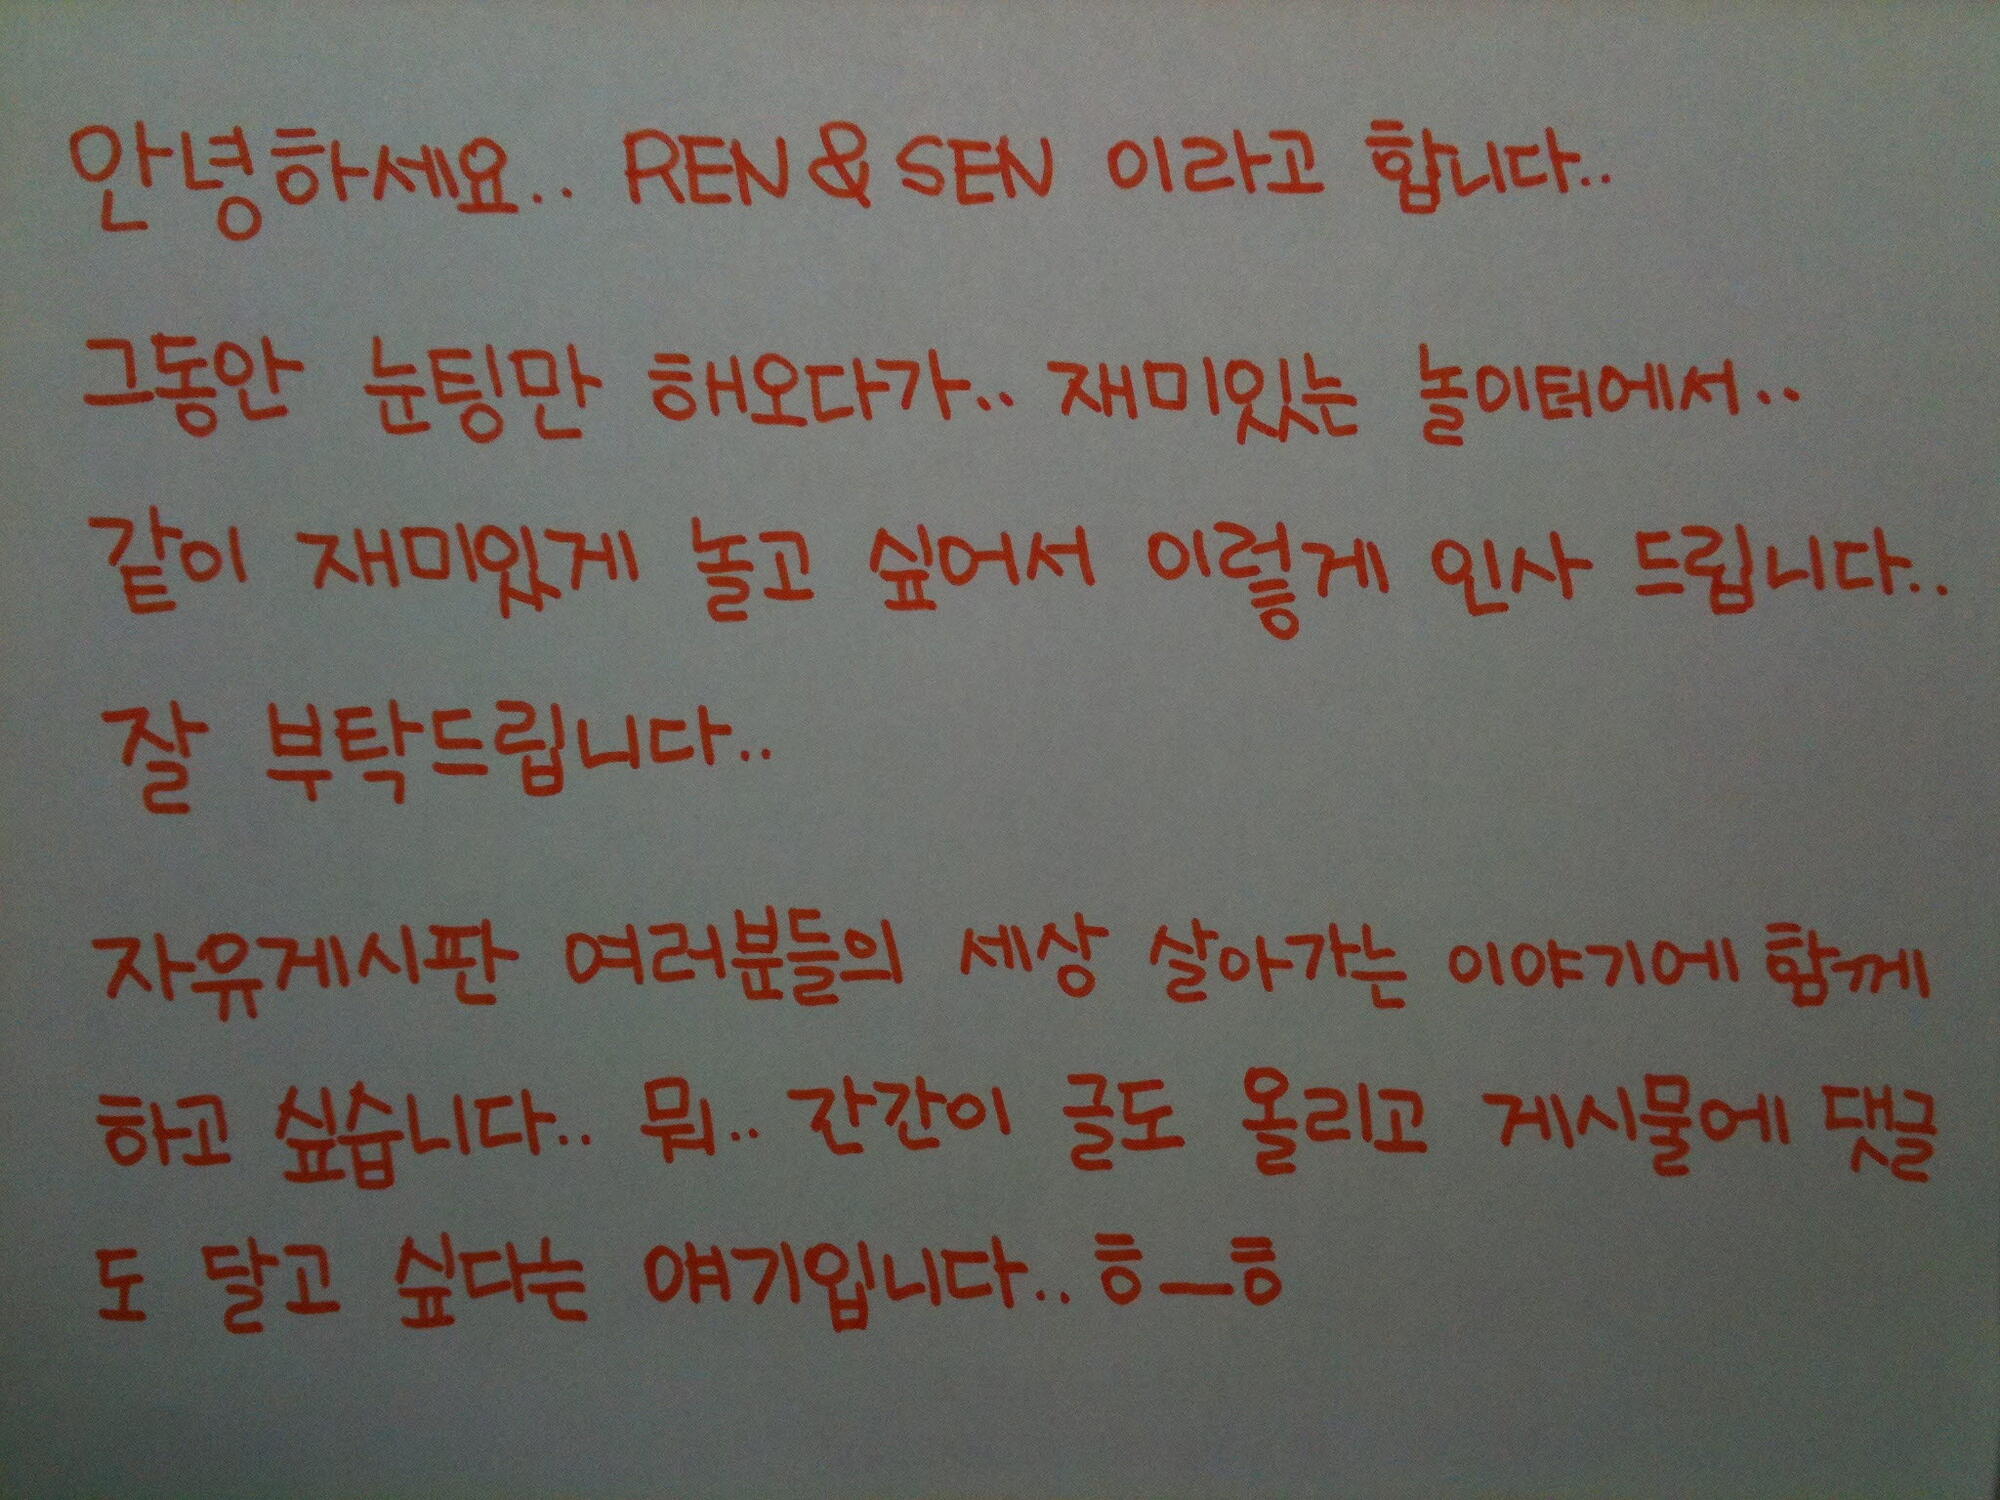 안녕하세요.. REN & SEN 이라고 합니다..
그동안 눈팅만 해오다가.. 재미있는 놀이터에서..
같이 재미있게 놀고 싶어서 이렇게 인사 드립니다..
잘 부탁드립니다..
자유게시판 여러분들의 세상 살아가는 이야기에 함께
하고 싶습니다.. 뭐.. 간간이 글도 올리고 게시물에 댓글
도 달고 싶다는 얘기입니다.. ㅎㅡㅎ